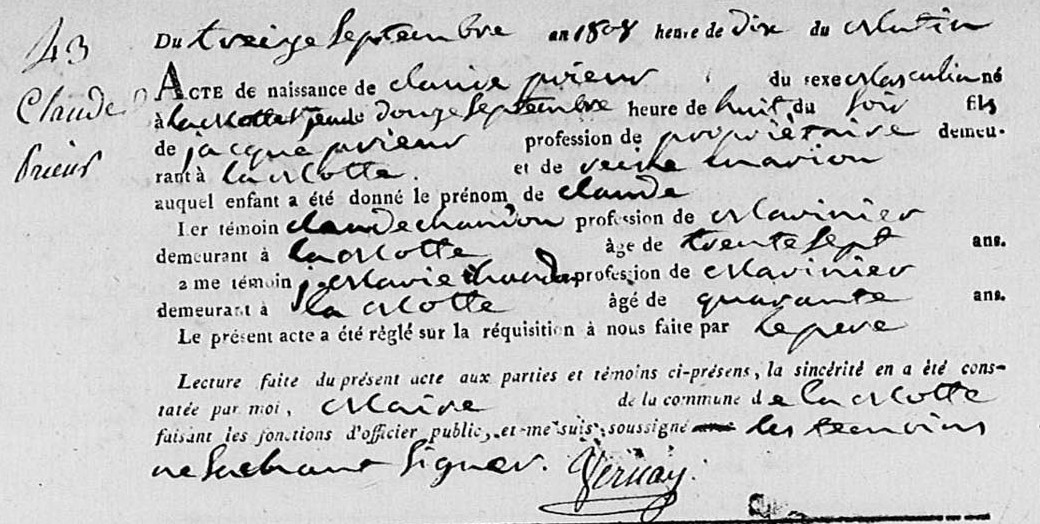 43
Claude
Prieur
Du treize Septembre an 1808 heure de Dix du Matin
ACTE de naissance de claude prieur du sexe Masculin né
à la Motte St jean le Douze Septembre heure de huit du Soir fils
de jacque prieur profession de propriètaire demeu-
rant à la Motte. et de reine Marion
auquel enfant a été donné le prénom de claude
1er témoin claude chanion profession de Marinier
demeurant à la Motte âge de trente Sept ans.
2me témoin Marie profession de Marinier
demeurant à la Motte âgé de quarante ans.
Le présent acte a été règlé sur la réquisition à nous faite par le pere
Lecture faite du présent acte aux parties et témoins ci-présens, la sincérité en a été cons-
tatée par moi, Maire de la commune de la Motte
faisant les fonctions d'officier public, et me suis soussigné les temoins
ne Sachant Signer. Vernay